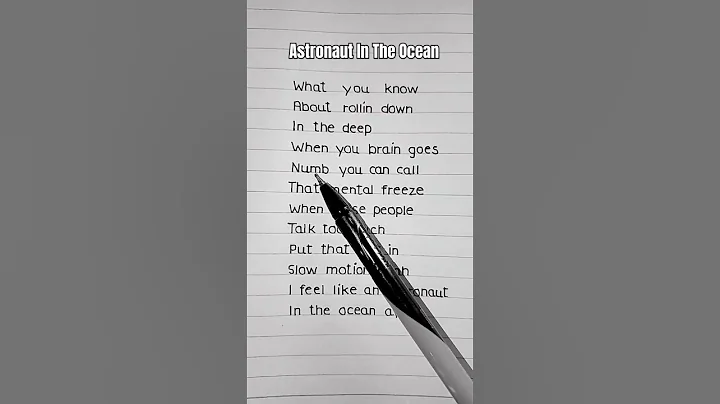 Astronaut In The Ocean
What you know
About rollin down
In the deep
When you brain goes
Numb you can call
That mental freeze
When people
Talk too
Put that
Slow motion
I feel like an
In the ocean